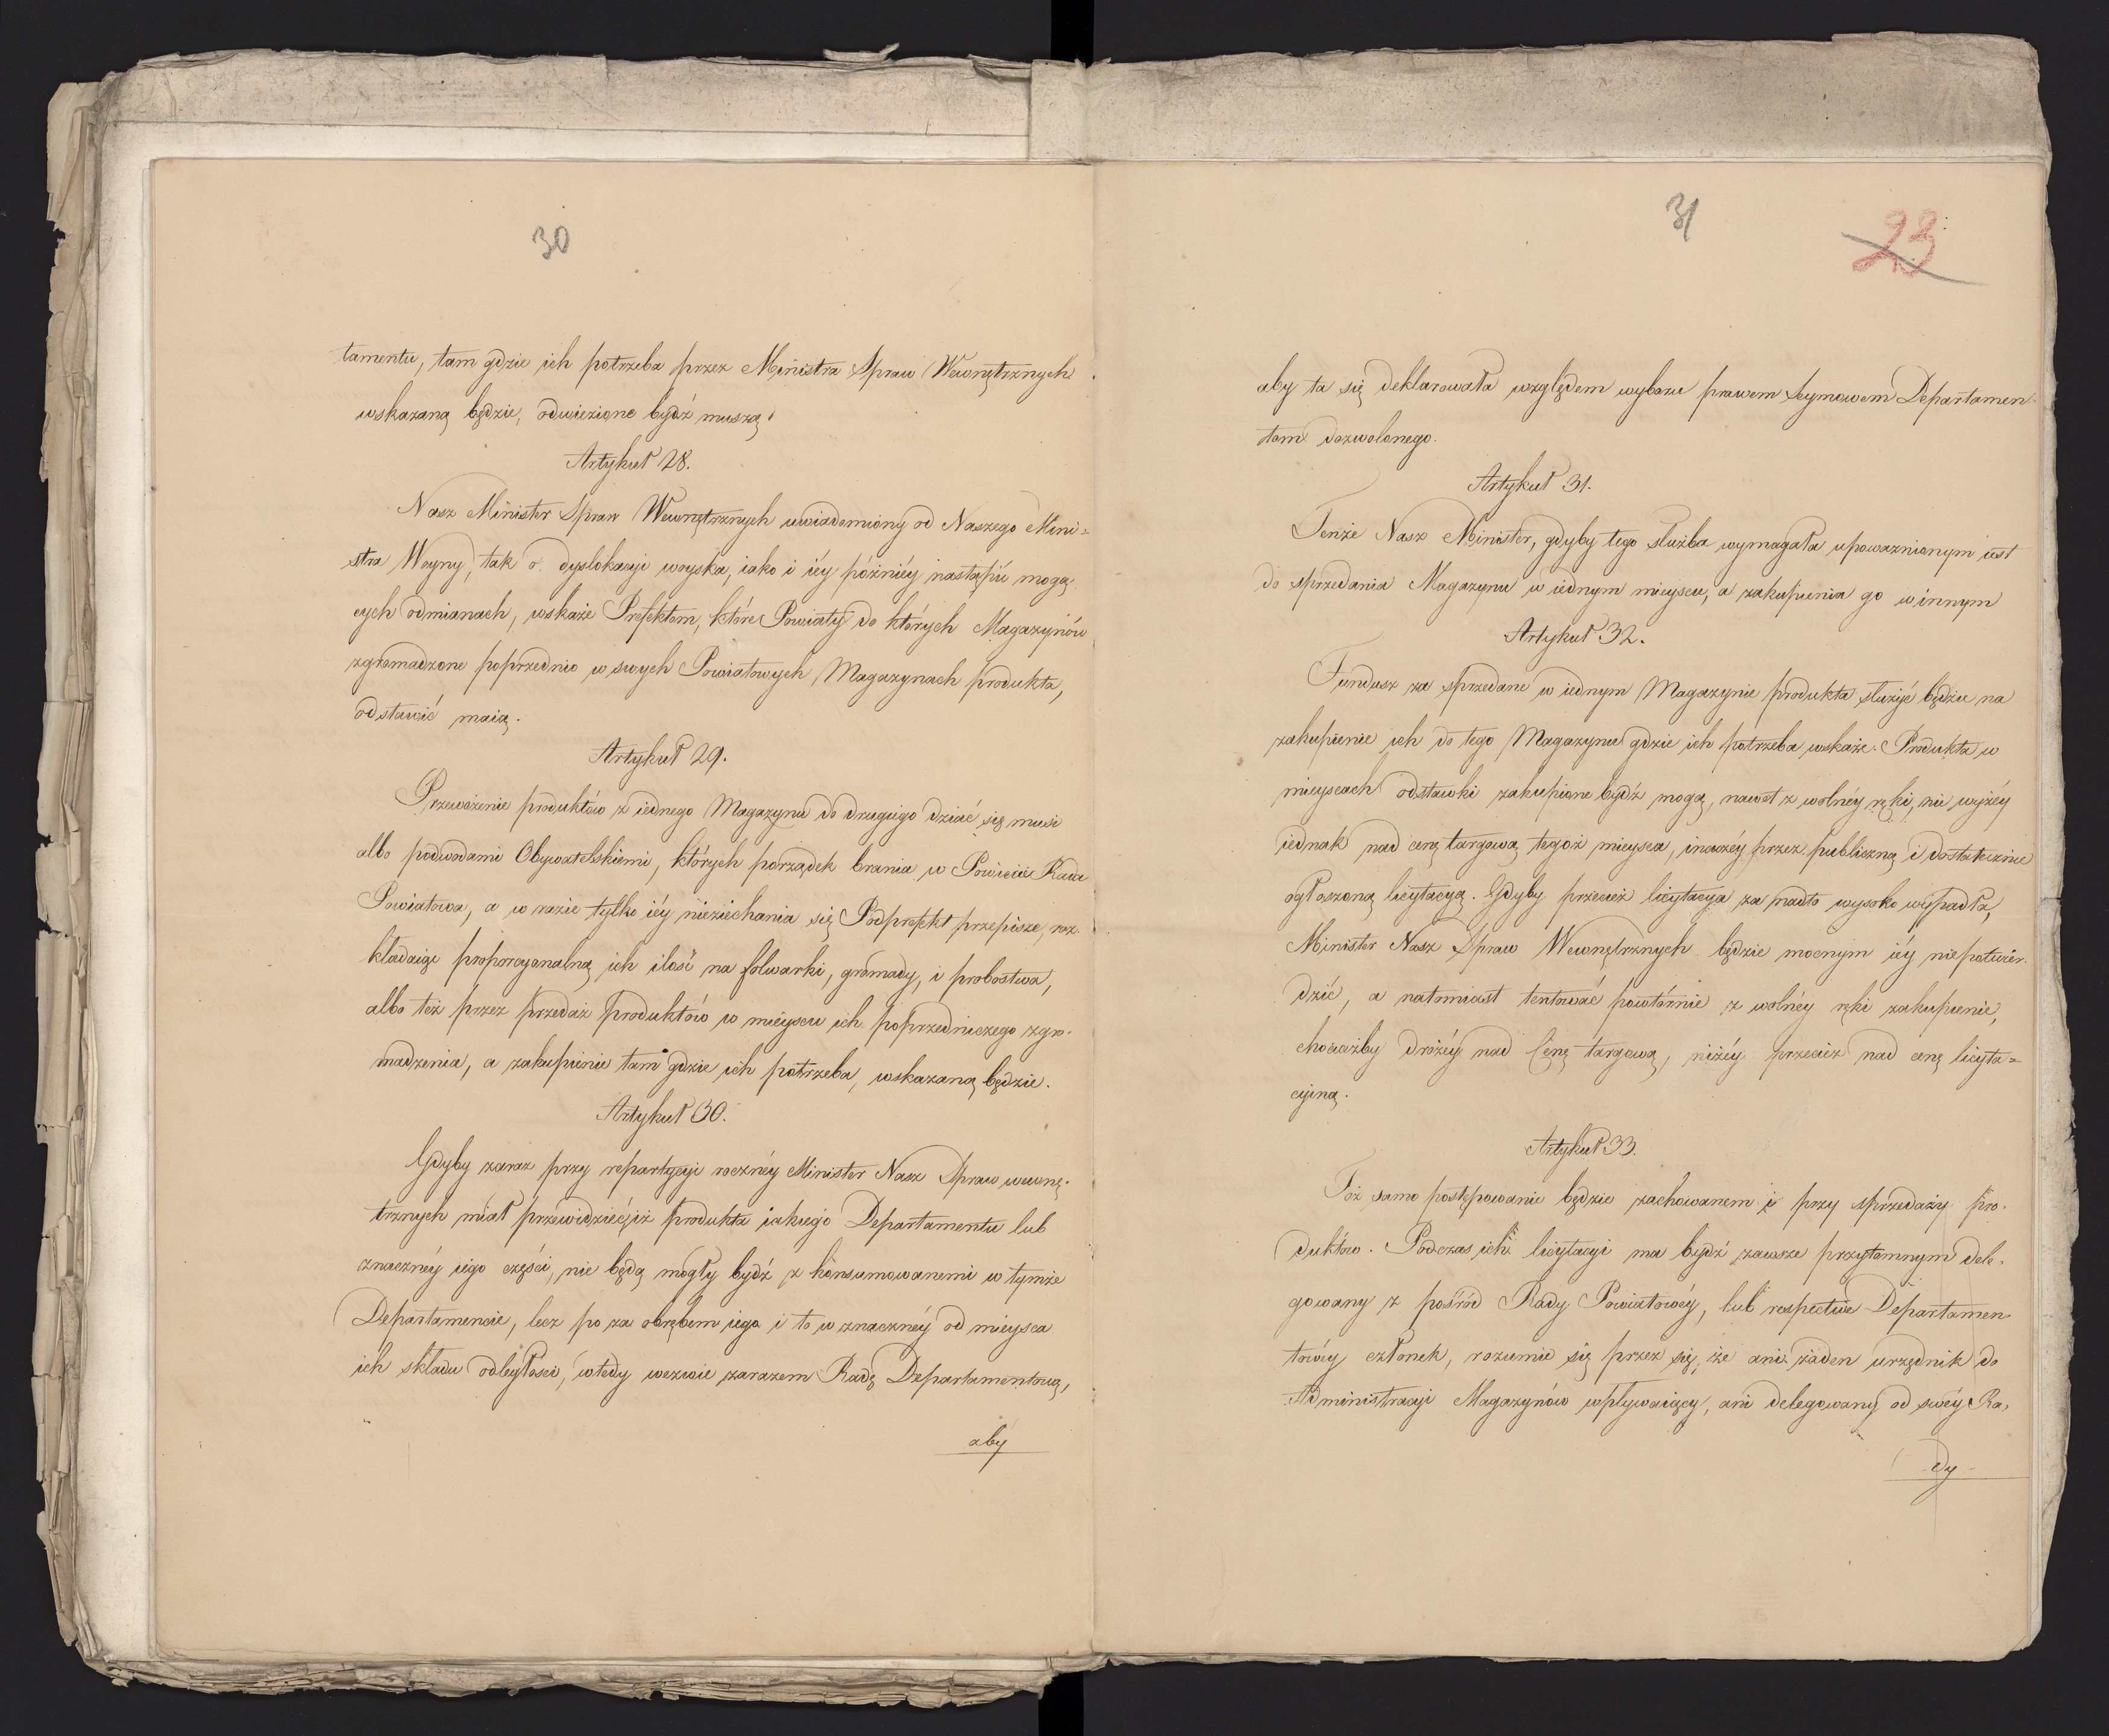 30
tamentu, tam gdzie ich potrzeba przez Ministra Spraw Wewnętrznych
wskazaną będzie, odwiezione bydź muszą.
Artykuł 28.
Nasz Minister Spraw Wewnętrznych uwiadomiony od Naszego Mini=
stra Woyny, tak o dyslokacyi woyska, iako i iéy późniéy nastąpić mogą-
cych odmianach, wskaże Prefektom, które Powiaty do których Magazynów
zgromadzone poprzednio w swych Powiatowych Magazynach produkta,
odstawić maią.
Artykuł 29.
Przewożenie produktów z iednego Magazynu do drugiego dziać się musi
albo podwodami Obywatelskiemi, których porządek brania w Powiecie Rada
Powiatowa, a w razie tylko iéy nieziechania się Podprefekt przepisze, roz-
kładaiąc proporcyonalną ich ilość na folwarki, gromady, i probostwa,
albo też przez przedaż produktów w mieyscu ich poprzedniczego zgro-
madzenia, a zakupienie tam gdzie ich potrzeba, wskazaną będzie.
Artykuł 30.
Gdyby zaraz przy repartycyi rocznéy Minister Nasz Spraw wewnę-
trznych miał przewidzieć, iż produkta iakiego Departamentu lub
znacznéy iego części, nie będą mogły bydź z konsumowanemi w tymże
Departamencie, lecz po za obrębem iego i to w znacznéy od mieysca
ich składu odległości, wtedy wezwie zarazem Radę Departamentową,
aby
31
23
aby ta się deklarowała względem wyboru prawem Seymowem Departamen-
tom dozwolonego.
Artykuł 31.
Tenże Nasz Minister, gdyby tego służba wymagała upoważnionym iest
do sprzedania Magazynu w iednym mieyscu, a zakupienia go w innym
Artykuł 32.
Fundusz za sprzedane w iednym Magazynie produkta służyć będzie na
zakupienie ich do tego Magazynu gdzie ich potrzeba wskaże. Produkta w
mieyscach odstawki zakupione bydź mogą, nawet z wolnéy ręki, nie wyżéy
iednak nad cenę targową tegoż mieysca, inaczéy przez publiczną i dostatecznie
ogłoszoną licytacyą. Gdyby przecież licytacyja za nadto wysoko wypadła,
Minister Nasz Spraw Wewnętrznych będzie mocnym iéy niepotwier-
dzić, a natomiast tentować powtórnie z wolnéy ręki zakupienie,
chociażby drożéy nad Cenę targową, niżéy przecież nad cenę licyta=
cyiną.
Artykuł 33.
Toż samo postępowanie będzie zachowanem i przy sprzedaży pro-
duktów. Podczas ich licytacyi ma bydź zawsze przytomnym dele-
gowany z pośród Rady Powiatowéy, lub respective Departamen
towéy członek, rozumie się przez się, że ani żaden urzędnik do
Administracyi Magazynów wpływaiący, ani delegowany od swéy Ra-
dy